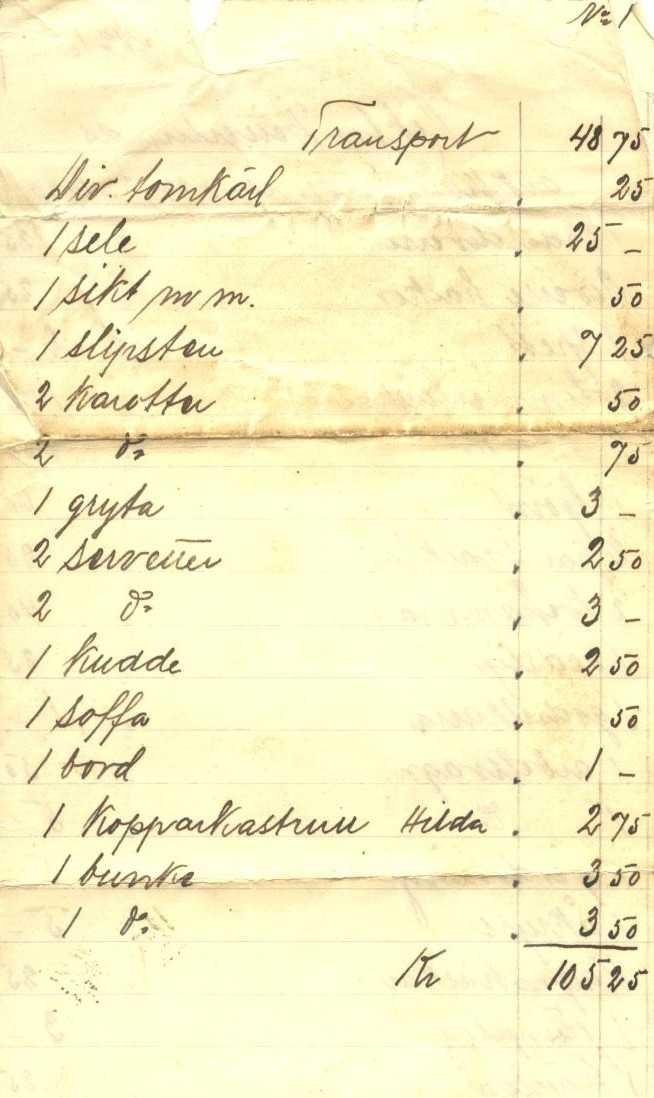 No 1
Transport 48 75
Div. tomkärl . 25
1 sele . 25 –
1 sikt m m. . 50
1 slipsten . 7 25
2 Karotter . 50
2 do . 75
1 gryta . 3 –
2 servetter . 2 50
2 do . 3 –
1 Kudde . 2 50
1 soffa . 50
1 bord . 1 –
1 Kopparkastrull Hilda . 2 75
1 bunke . 3 50
1 do . 3 50
Kr 105 25